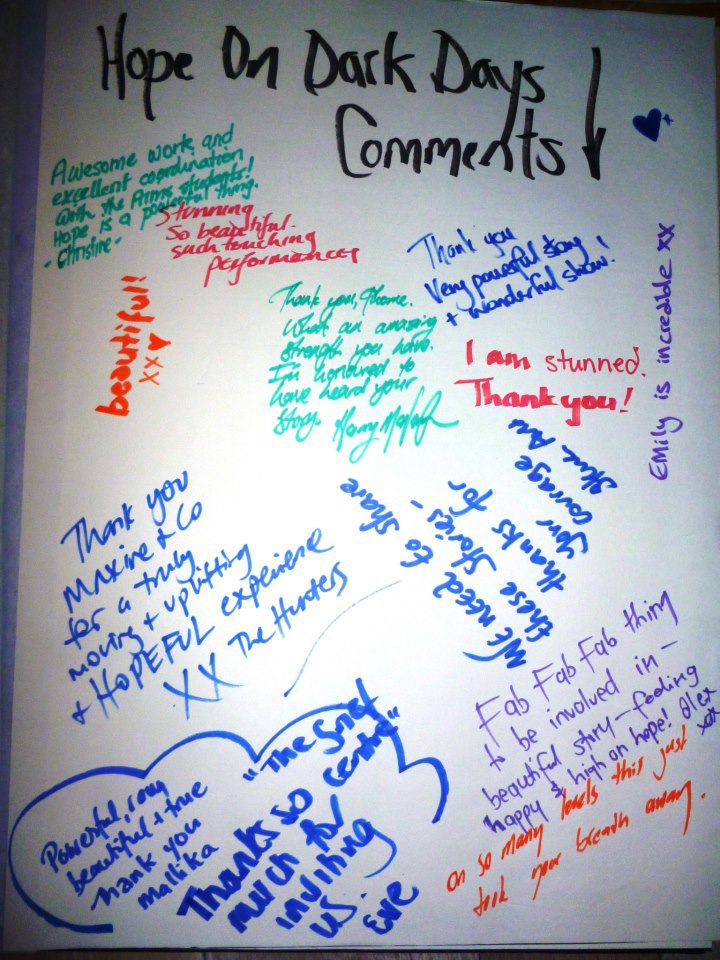 Hope On Dark Days
Comments
Awesome work and
excellent coordination
with the Arms students!
Hope is a powerful thing.
- Christine -
Stunning
So beautiful.
such touching
performances
Thank you
Very powerful story
+ wonderful show!
EMily is incredible xx
beautiful!
xx
Thank you,
What an amazing
strength you have.
I'm honoured to
have heard your
story.
I am stunned.
Thank you!
We need to share
these stories -
thanks for
your
courage
Thank you
Maxine + Co
for a truly
moving + uplifting
+ HOPEFUL experience
XX The Hunters
Fab Fab Fab thing
to be involved in -
beautiful story - feeling
happy & high on hope! Alex
xox
on so many levels this just
took your breath away.
Powerful,
beautiful + true
thank you
mallika
"The Grief
Centre"
Thanks so
much for
inviting
us.
Eve